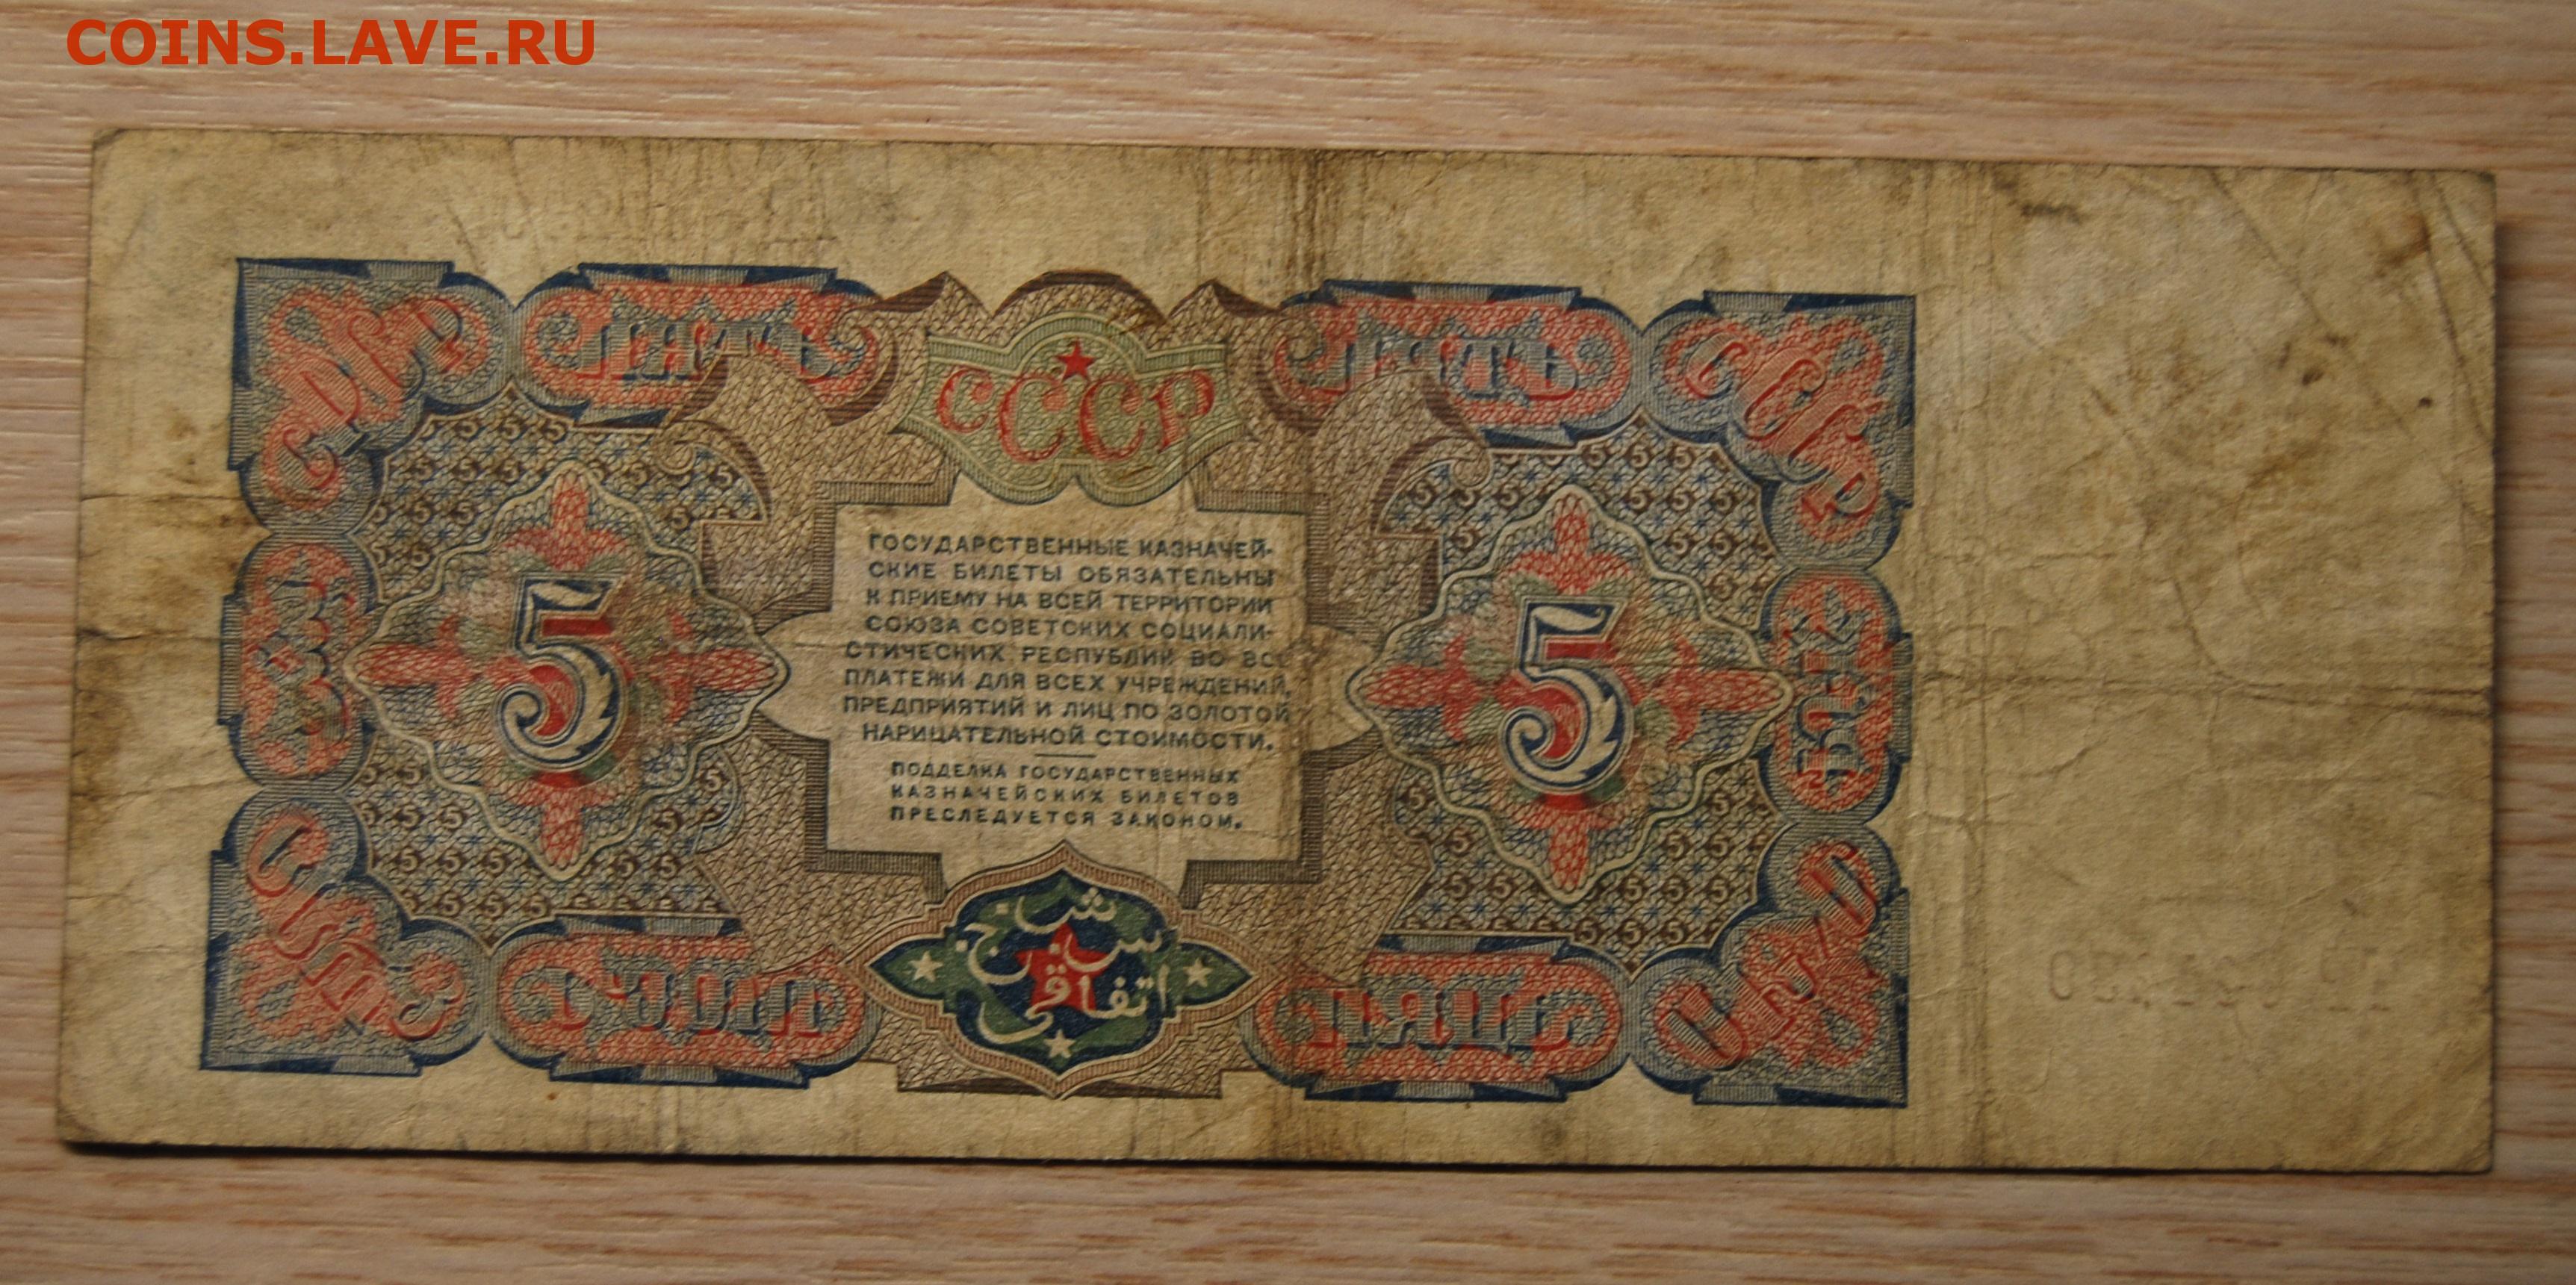 COINS.LAVE.RU
ПЯТЬ ПЯТЬ
СССР
ГОСУДАРСТВЕННЫЕ КАЗНАЧЕЙ-
СКИЕ БИЛЕТЫ ОБЯЗАТЕЛЬНЫ
К ПРИЕМУ НА ВСЕЙ ТЕРРИТОРИИ
СОЮЗА СОВЕТСКИХ СОЦИАЛИ-
СТИЧЕСКИХ РЕСПУБЛИК ВО ВСЕ
ПЛАТЕЖИ ДЛЯ ВСЕХ УЧРЕЖДЕНИЙ,
ПРЕДПРИЯТИЙ И ЛИЦ ПО ЗОЛОТОЙ
НАРИЦАТЕЛЬНОЙ СТОИМОСТИ.
5 5
ПОДДЕЛКА ГОСУДАРСТВЕННЫХ
КАЗНАЧЕЙСКИХ БИЛЕТОВ
ПРЕСЛЕДУЕТСЯ ЗАКОНОМ.
ش. س. ج.
اتفاقى